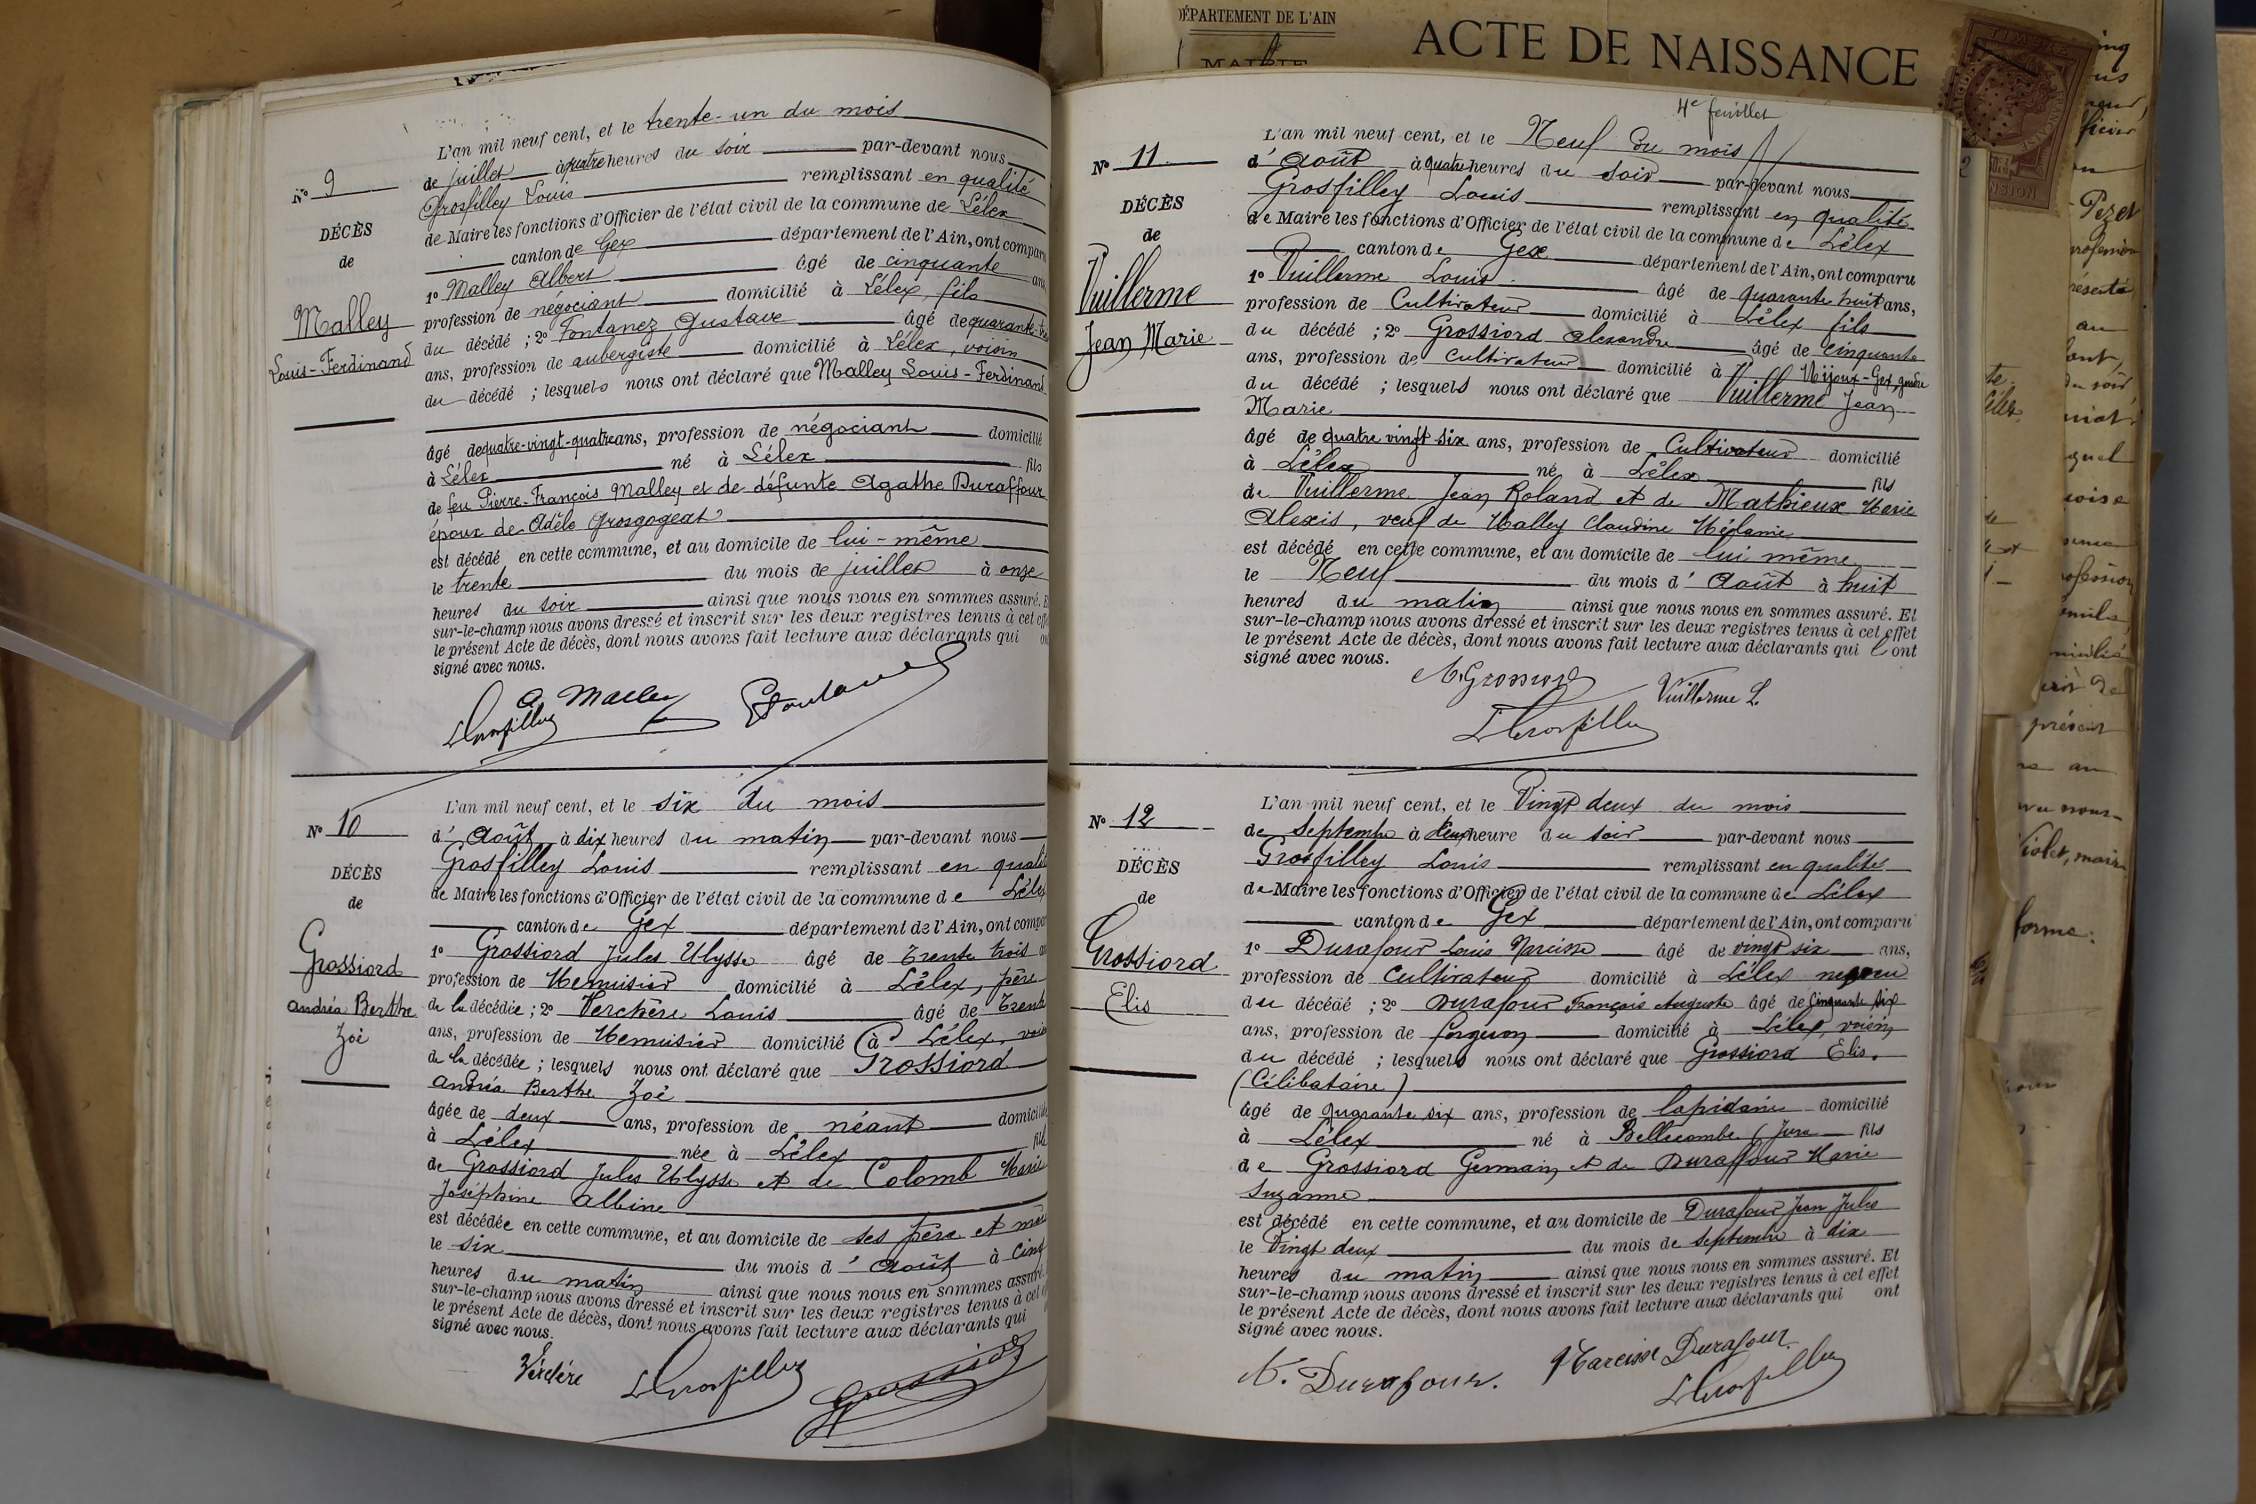 L'an mil neuf cent, et le trente-un du mois
de juillet à quatre heures du soir par-devant nous
Grosfilley Louis remplissant en qualité
de Maire les fonctions d'Officier de l'état civil de la commune de Lélex
canton de Gex département de l'Ain, ont comparu
1º Malley Albert âgé de cinquante ans
profession de négociant domicilié à Lélex, fils
du décédé ; 2º Fontanez Gustave âgé de quarante-
ans, profession de aubergiste domicilié à Lélex, voisin
du décédé ; lesquels nous ont déclaré que Malley Louis-Ferdinand
âgé de quatre-vingt-quatre ans, profession de négociant domicilié
à Lélex né à Lélex fils
de feu Pierre-François Malley et de défunte Agathe Duraffour
époux de Adèle Grosgogeat
est décédé en cette commune, et au domicile de lui-même
le trente du mois de juillet à onze
heures du soir ainsi que nous nous en sommes assuré. E
sur-le-champ nous avons dressé et inscrit sur les deux registres tenus à cet eff
le présent Acte de décès, dont nous avons fait lecture aux déclarants qui on
signé avec nous.
Nº 9
DÉCÈS
de
Malley
Louis-Ferdinand
A Malley
LGrosfilley
L'an mil neuf cent, et le six du mois
d'Août à dix heures du matin par-devant nous
Grosfilley Louis remplissant en qualité
de Maire les fonctions d'Officier de l'état civil de la commune de Lélex
canton de Gex département de l'Ain, ont compar
1º Grossiord Jules Ulysse âgé de trente trois an
profession de Menuisier domicilié à Lélex, père
de la décédée ; 2º Verchère Louis âgé de trente
ans, profession de Menuisier domicilié à Lélex, voisin
de la décédée ; lesquels nous ont déclaré que Grossiord
Andréa Berthe Zoé
âgée de deux ans, profession de néant domiciliée
à Lélex née à Lélex fille
de Grossiord Jules Ulysse et de Colomb Marie
Joséphine Albine
est décédée en cette commune, et au domicile de ses père et mère
le six du mois d'Août à cinq
heures du matin ainsi que nous nous en sommes assuré.
sur-le-champ nous avons dressé et inscrit sur les deux registres tenus à cet e
le présent Acte de décès, dont nous avons fait lecture aux déclarants qui
signé avec nous.
Nº 10
DÉCÈS
de
Grossiord
Andréa Berthe
Zoé
LGrosfilley
Grossiord
DÉPARTEMENT DE L'AIN
MAIRIE
ACTE DE NAISSANCE
4e feuillet
L'an mil neuf cent, et le Neuf du mois
d'Août à quatre heures du soir par-devant nous
Grosfilley Louis remplissant en qualité
de Maire les fonctions d'Officier de l'état civil de la commune de Lélex
canton de Gex département de l'Ain, ont comparu
1º Vuillerme Louis âgé de quarante huit ans,
profession de Cultivateur domicilié à Lélex fils
du décédé ; 2º Grossiord Alexandre âgé de cinquante
ans, profession de cultivateur domicilié à Mijoux-Gex, gendre
du décédé ; lesquels nous ont déclaré que Vuillerme Jean
Marie
âgé de quatre vingt six ans, profession de Cultivateur domicilié
à Lélex né à Lélex fils
de Vuillerme Jean Roland et de Mathieux Marie
Alexis, veuf de Malley Claudine Mélanie
est décédé en cette commune, et au domicile de lui même
le Neuf du mois d'Août à huit
heures du matin ainsi que nous nous en sommes assuré. Et
sur-le-champ nous avons dressé et inscrit sur les deux registres tenus à cet effet
le présent Acte de décès, dont nous avons fait lecture aux déclarants qui l'ont
signé avec nous.
Nº 11
DÉCÈS
de
Vuillerme
Jean Marie
A. Grossiord
Vuillerme L.
LGrosfilley
L'an mil neuf cent, et le Vingt deux du mois
de Septembre à deux heure du soir par-devant nous
Grosfilley Louis remplissant en qualité
de Maire les fonctions d'Officier de l'état civil de la commune de Lélex
canton de Gex département de l'Ain, ont comparu
1º Durafour Louis Narcisse âgé de vingt six ans,
profession de Cultivateur domicilié à Lélex neveu
du décédé ; 2º Durafour François Auguste âgé de cinquante six
ans, profession de forgeron domicilié à Lélex, voisin
du décédé ; lesquels nous ont déclaré que Grossiord Elis.
(Célibataire)
âgé de quarante six ans, profession de lapidaire domicilié
à Lélex né à Bellecombe (Jura fils
de Grossiord Germain et de Duraffour Marie
Suzanne
est décédé en cette commune, et au domicile de Durafour Jean Jules
le Vingt deux du mois de Septembre à dix
heures du matin ainsi que nous nous en sommes assuré. Et
sur-le-champ nous avons dressé et inscrit sur les deux registres tenus à cet effet
le présent Acte de décès, dont nous avons fait lecture aux déclarants qui ont
signé avec nous.
Nº 12
DÉCÈS
de
Grossiord
Elis
Durafour.
Narcisse Durafour.
LGrosfilley
Pezet
profession
présent
Violet, maire
forme: